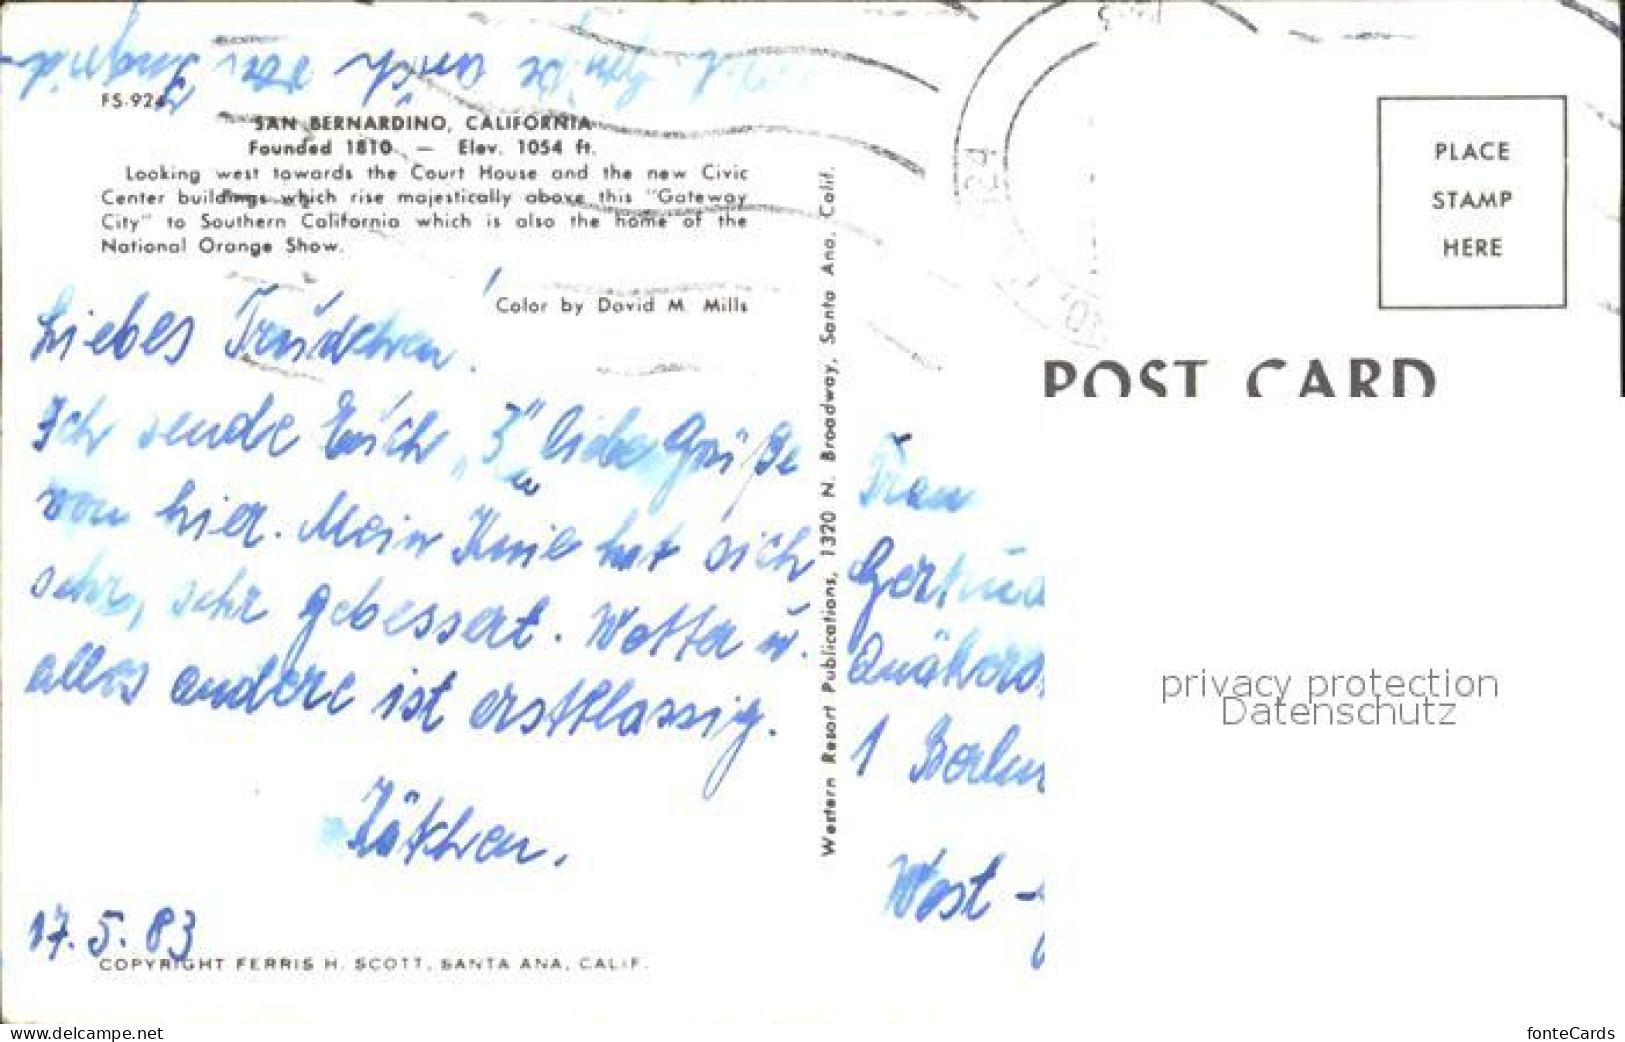 FS-924
SAN BERNARDINO, CALIFORNIA
Founded 1810 — Elev. 1054 ft.
Looking west towards the Court House and the new Civic
Center buildings which rise majestically above this "Gateway
City" to Southern California which is also the home of the
National Orange Show.
Color by David M. Mills
Liebes Trudchen.
Ich sende Euch „3" liebe Grüße
von hier. Mein Knie hat sich
sehr, sehr gebessert. Wetter u.
alles andere ist erstklassig.
Käthchen.
17.5.83
COPYRIGHT FERRIS H. SCOTT, SANTA ANA, CALIF.
Western Resort Publications, 1320 N. Broadway, Santa Ana, Calif.
24
PLACE
STAMP
HERE
POST CARD
Frau
Gertrud
1 Berlin
West -
privacy protection
Datenschutz
www.delcampe.net
fonteCards